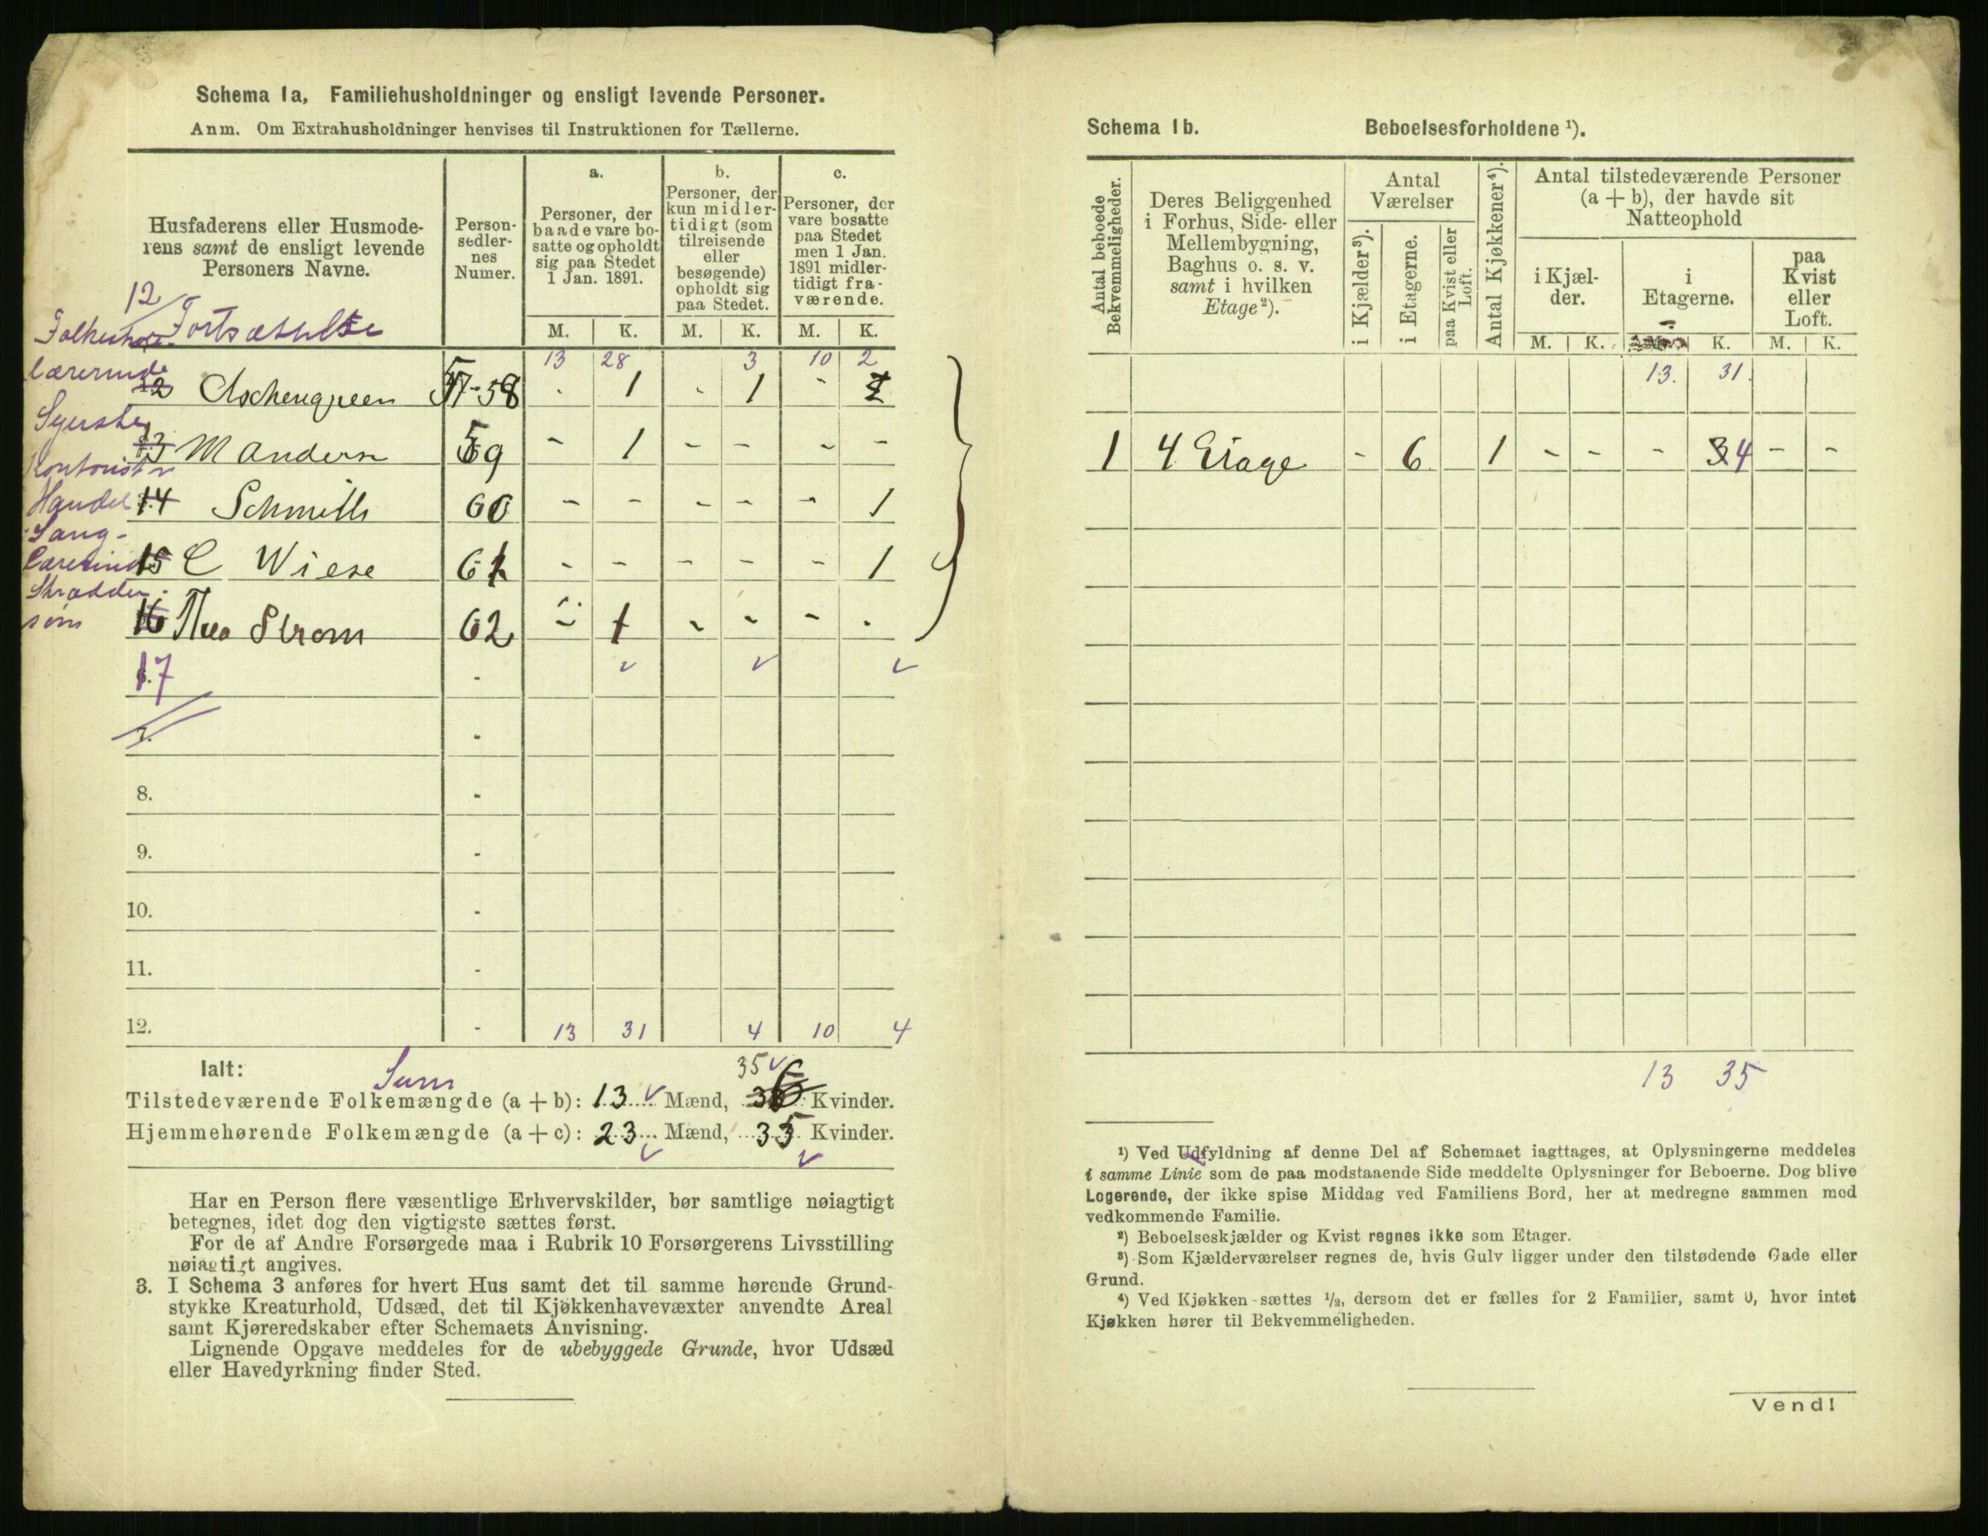 Schema 1a. Familiehusholdninger og ensligt levende Personer.
Anm. Om Extrahusholdninger henvises til Instruktionen for Tællerne.
Husfaderens eller Husmode-
rens samt de ensligt levende
Personers Navne.
Person-
sedler-
nes
Numer.
a.
Personer, der
baade vare bo-
satte og opholdt
sig paa Stedet
1 Jan. 1891.
b.
Personer, der
kun midler-
tidigt (som
tilreisende
eller
besøgende)
opholdt sig
paa Stedet.
c.
Personer, der
vare bosatte
paa Stedet
men 1 Jan.
1891 midler-
tidigt fra-
værende.
M. K. M. K. M. K.
12
Fortsættelse
13 28 3 10 2
Lærerinde
12 Aschengreen 57-58 - 1 - 1 -
Syerske
13 M Andersen 59 - 1 - - - -
Kontorist
Handel 14 Schmidt 60 - - - - - 1
Sang-
Lærerind 15 C Wiese 61 - - - - - 1
Skrædder-
søm 16 Thea Strom 62 - 1 - - - -
17 -
7. -
8. -
9. -
10. -
11. -
12. - 13 31 4 10 4
Ialt:
Sum 35
Tilstedeværende Folkemængde (a + b): 13 Mænd, 36 Kvinder.
Hjemmehørende Folkemængde (a + c): 23 Mænd, 35 Kvinder.
Har en Person flere væsentlige Erhvervskilder, bør samtlige nøiagtigt
betegnes, idet dog den vigtigste sættes først.
For de af Andre Forsørgede maa i Rubrik 10 Forsørgerens Livsstilling
nøiagtigt angives.
3. I Schema 3 anføres for hvert Hus samt det til samme hørende Grund-
stykke Kreaturhold, Udsæd, det til Kjøkkenhavevæxter anvendte Areal
samt Kjøreredskaber efter Schemaets Anvisning.
Lignende Opgave meddeles for de ubebyggede Grunde, hvor Udsæd
eller Havedyrkning finder Sted.
Schema 1b. Beboelsesforholdene ¹).
Antal beboede
Bekvemmeligheder.
Deres Beliggenhed
i Forhus, Side- eller
Mellembygning,
Baghus o. s. v.
samt i hvilken
Etage²).
Antal
Værelser
i Kjælder³).
i Etagerne.
paa Kvist eller
Loft.
Antal Kjøkkener⁴).
Antal tilstedeværende Personer
(a + b), der havde sit
Natteophold
i Kjæl-
der.
i
Etagerne.
paa
Kvist
eller
Loft.
M. K. M. K. M. K.
13. 31.
1 4 Etage - 6 1 - - - 4 - -
13 35
¹) Ved Udfyldning af denne Del af Schemaet iagttages, at Oplysningerne meddeles
i samme Linie som de paa modstaaende Side meddelte Oplysninger for Beboerne. Dog blive
Logerende, der ikke spise Middag ved Familiens Bord, her at medregne sammen med
vedkommende Familie.
²) Beboelseskjælder og Kvist regnes ikke som Etager.
³) Som Kjælderværelser regnes de, hvis Gulv ligger under den tilstødende Gade eller
Grund.
⁴) Ved Kjøkken sættes ¹/₂, dersom det er fælles for 2 Familier, samt 0, hvor intet
Kjøkken hører til Bekvemmeligheden.
Vend!